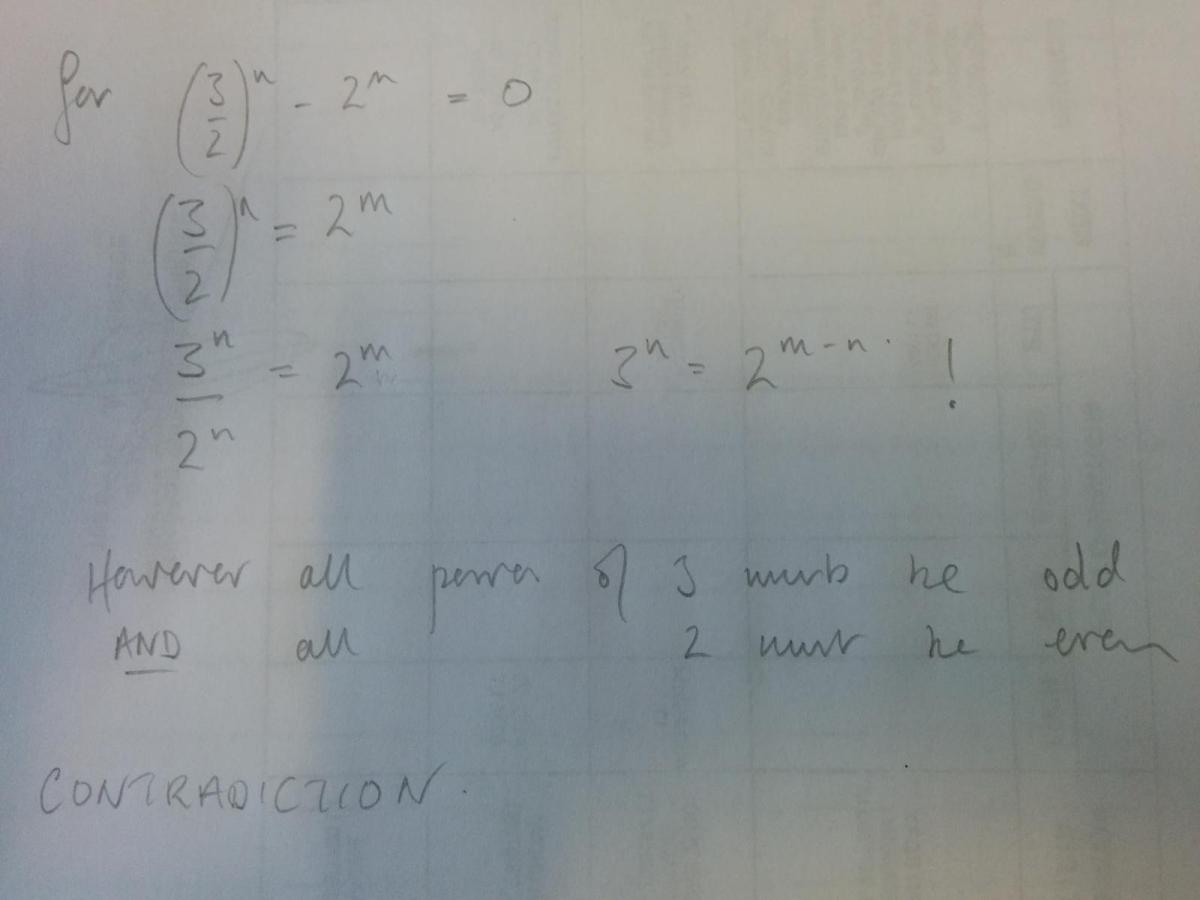 for (3/2)^n - 2^m = 0
(3/2)^n = 2^m
3^n/2^n = 2^m 3^n = 2^m-n. !
However all power of 3 must be odd
AND all 2 must be even
CONTRADICTION.